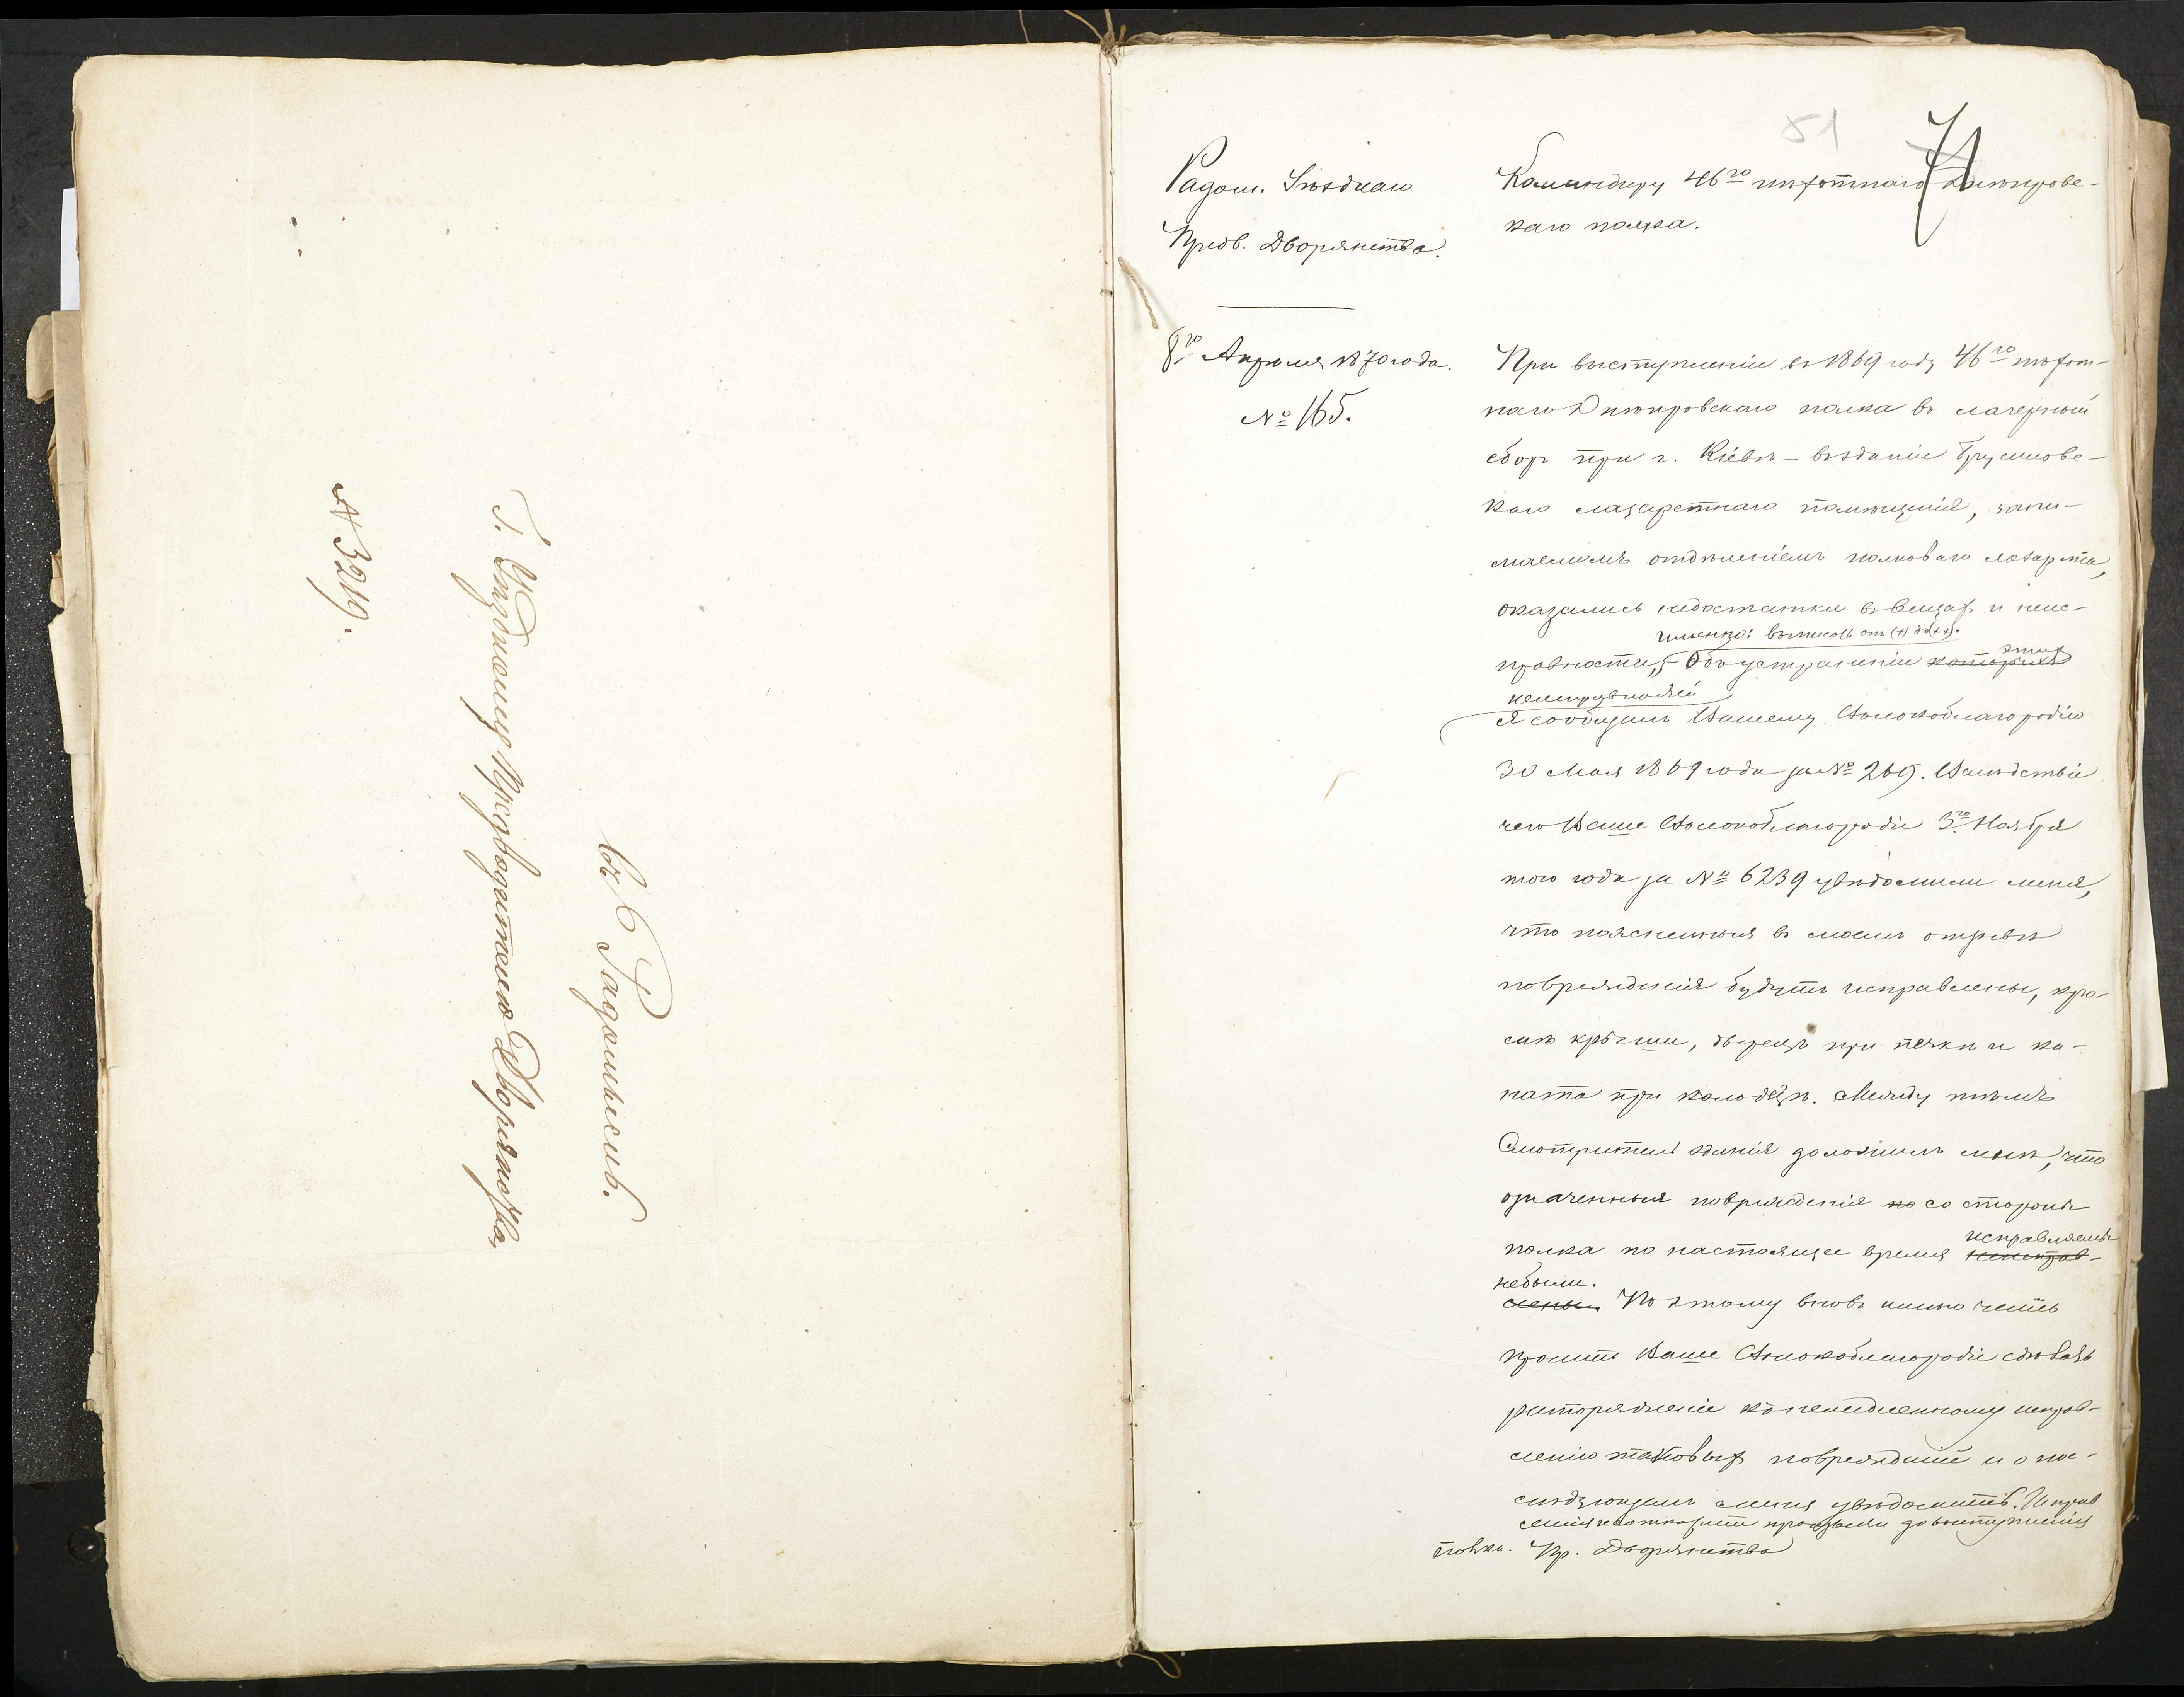 № 3219.
Г. Уѣздному Предводителю Дворянства,
въ г. Радомыслѣ.
51
71
Радом. Уѣзднаго
Предв. Дворянства.
8го Апрѣля 1870 года.
№ 165.
Командиру 46го пѣхотнаго Днѣпровс-
каго полка.
При выступленіи въ 1869 году 46го пѣхот-
наго Днѣпровскаго полка въ лагерный
сборъ при г. Кіевѣ – въ зданіи Брусиловс-
каго лазаретнаго помѣщенія, зани-
маемомъ отдѣленіемъ полковаго лазарета,
оказались недостатки въ вещахъ и неис-
именно: выписать от (+) до (++).
правности, Объ устраненіи которыхъ этихъ
неисправностей
я сообщилъ Вашему Высокоблагородію
30 Мая 1869 года за № 269. Вслѣдствіе
чего Ваше Высокоблагородіе 3го Ноября
того года за № 6239 увѣдомили меня,
что поясненныя въ моемъ отзывѣ
поврежденія будутъ исправлены, кро-
мѣ крыши, дверецъ при печкѣ и ка-
ната при колодезѣ. Между тѣмъ
Смотритель зданія доложилъ мнѣ, что
означенныя поврежденія по со стороны
исправляемы
полка по настоящее время неисправ-
небыли.
лены. Поэтому вновь имѣю честь
просить Ваше Высокоблагородіе сдѣлать
распоряженіе къ немедленному исправ-
ленію таковыхъ поврежденій и о пос-
лѣдующемъ меня увѣдомить. Исправ
ленія до выступленія
полка. Пр. Дворянства